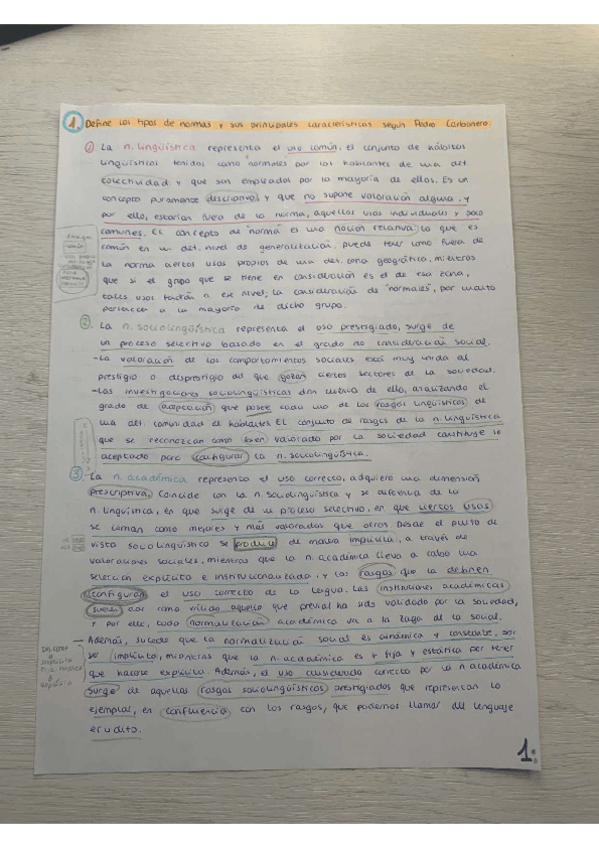 1. Define los tipos de normas y sus principales características según Pedro Carbonero.
① La n. lingüística representa el uso común, el conjunto de hábitos
lingüísticos tenidos como "normales" por los hablantes de una det.
colectividad y que son empleados por la mayoría de ellos. Es un
concepto puramente descriptivo y que no supone valoración alguna, y
por ello, estarían fuera de la norma, aquellos usos individuales y poco
comunes. El concepto de "norma" es una noción relativa: lo que es
común en un det. nivel de generalización, puede tener como fuera de
la norma ciertos usos propios de una det. zona geográfica, mientras
que si el grupo que se tiene en consideración es el de esa zona,
tales usos tendrán a ese nivel, la consideración de "normales", por cuanto
pertenece a la mayoría de dicho grupo.
② La n. sociolingüística representa el uso prestigiado, surge de
un proceso selectivo basado en el grado de consideración social.
-La valoración de los comportamientos sociales está muy unida al
prestigio o desprestigio del que gozan ciertos sectores de la sociedad.
-Las investigaciones sociolingüísticas dan cuenta de ello, analizando el
grado de aceptación que posee cada uno de los rasgos lingüísticos de
una det. comunidad de hablantes. El conjunto de rasgos de la n. lingüística
que se reconozcan como bien valorado por la sociedad constituye lo
aceptado para configurar la n. sociolingüística.
③ La n. académica representa el uso correcto, adquiere una dimensión
prescriptiva. Coincide con la n. sociolingüística y se diferencia de la
n. lingüística, en que surge de un proceso selectivo, en que ciertos usos
se toman como mejores y más valorados que otros. Desde el punto de
vista sociolingüístico se produce de manera implícita, a través de
valoraciones sociales, mientras que la n. académica lleva a cabo una
selección explícita e institucionalizada, y los rasgos que la definen
configuran el uso correcto de la lengua. Las instituciones académicas
suelen dar como válido aquello que previamente ha sido validado por la sociedad,
y por ello, toda normalización académica va a la zaga de la social.
— Además, sucede que la normalización social es dinámica y constante, por
ser implícita, mientras que la n. académica es + fija y estática por tener
que hacerse explícita. Además, el uso considerado correcto por la n. académica
surge de aquellos rasgos sociolingüísticos prestigiados que representan lo
ejemplar, en confluencia con los rasgos, que podemos llamar del lenguaje
erudito.
1.